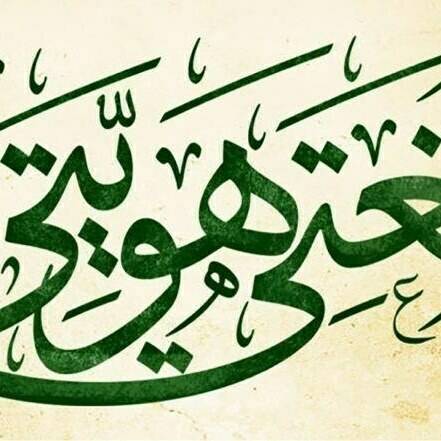 لغتي هويّتي